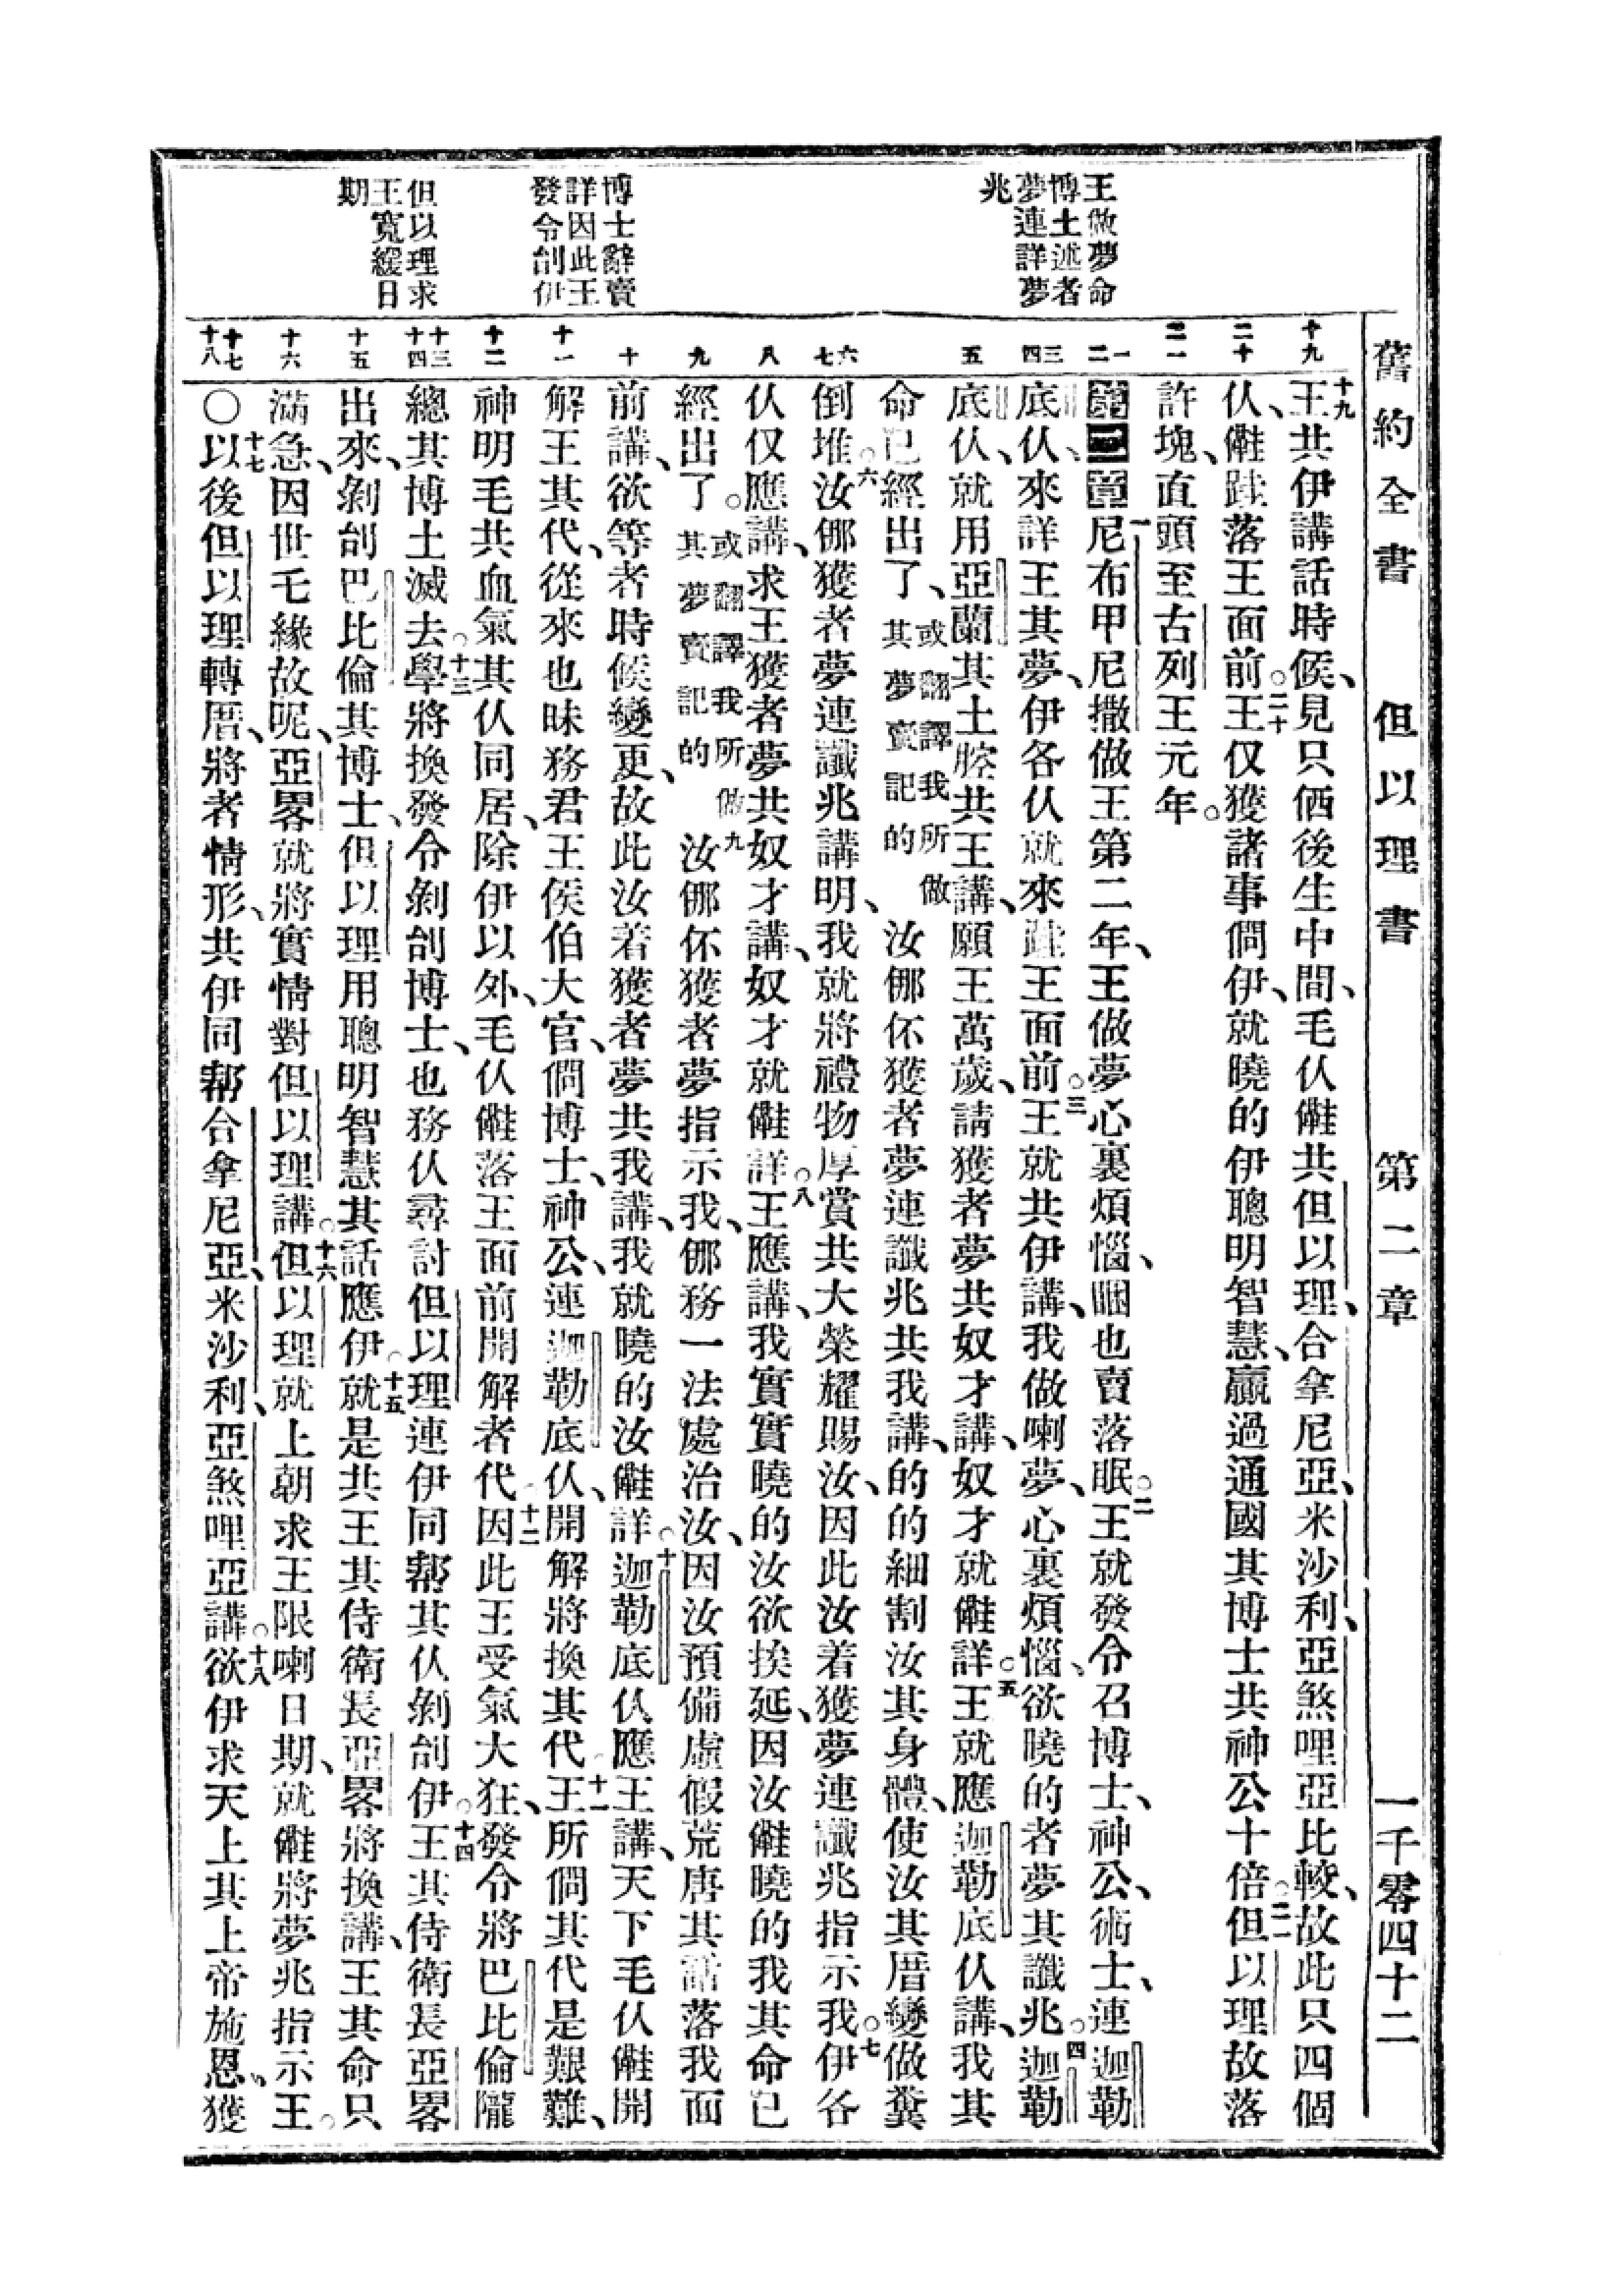 舊約全書 但以理書 第二章 一千零四十二
王做夢命
博士述者
夢連詳夢
兆
博士辭賣
詳因此王
發令刣伊
但以理求
王寬緩日
期
十九
二十
二一
一
二
三
四
五
六
七
八
九
十
十一
十二
十三
十四
十五
十六
十七
十八
十九王共伊講話時候、見只㑚後生中間、毛伩㒕共但以理、合拿尼亞、米沙利、亞煞哩亞比較、故此只四個
伩、㒕跬落王面前。二十王仅獲諸事僴伊、就曉的伊聰明智慧、贏過通國其博士共神公十倍。二一但以理故落
許塊、直頭至古列王元年。
第二章 一尼布甲尼撒做王第二年、王做夢心裏煩惱、睏也賣落眠。二王就發令召博士、神公、術士、連迦勒
底伩、來詳王其夢、伊各伩就來跬王面前。三王就共伊講、我做喇夢、心裏煩惱、欲曉的者夢其讖兆。四迦勒
底伩、就用亞蘭其土腔共王講、願王萬歲、請獲者夢共奴才講、奴才就㒕詳。五王就應迦勒底伩講、我其
命已經出了、或翻譯我所做其夢賣記的汝㑚伓獲者夢連讖兆共我講、的的細割汝其身體、使汝其厝變做糞
倒堆。六汝㑚獲者夢連讖兆講明、我就將禮物厚賞共大榮耀賜汝、因此汝着獲夢連讖兆指示我。七伊各
伩仅應講、求王獲者夢共奴才講、奴才就㒕詳。八王應講、我實實曉的汝欲挨延、因汝㒕曉的我其命已
經出了。或翻譯我所做其夢賣記的九汝㑚伓獲者夢指示我、㑚務一法處治汝、因汝預備虛假荒唐其話落我面
前講、欲等者時候變更、故此汝着獲者夢共我講、我就曉的汝㒕詳。十迦勒底伩應王講、天下毛伩㒕開
解王其代、從來也昧務君王侯伯大官、僴博士、神公、連迦勒底伩、開解將換其代十一王所僴其代是艱難、
神明毛共血氣其伩同居、除伊以外、毛伩㒕落王面前開解者代。十二因此王受氣大狂、發令將巴比倫隴
總其博士滅去。十三學將換發令剝刣博士、也務伩尋討但以理連伊同幫其伩剝刣伊。十四王其侍衛長亞畧
出來、剝刣巴比倫其博士、但以理用聰明智慧其話應伊。十五就是共王其侍衛長亞畧將換講、王其命只
滿急、因世乇緣故呢、亞畧就將實情對但以理講。十六但以理就上朝求王限喇日期、就㒕將夢兆指示王。
○十七以後但以理轉厝、將者情形、共伊同幫合拿尼亞、米沙利、亞煞哩亞講。十八欲伊求天上其上帝施恩、獲